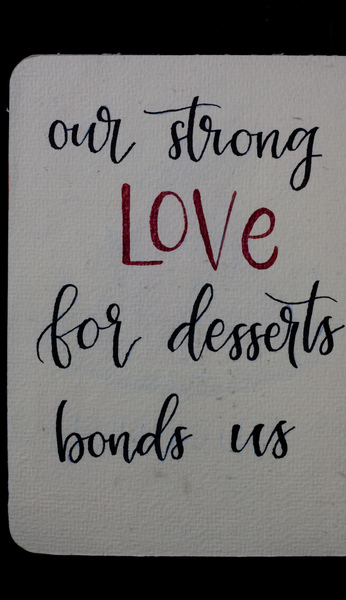 our strong
LOVe
for desserts
bonds us